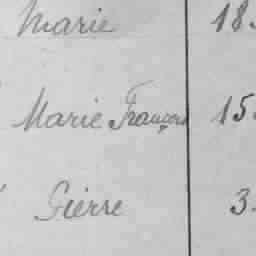 Marie 18.
Marie François 15.
Pierre 3.